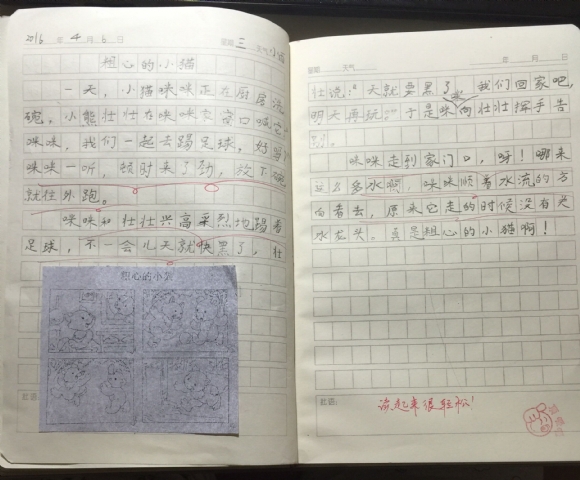 2016 年 4 月 6 日 星期 三 天气 小雨
粗心的小猫
一天，小猫咪咪正在厨房洗
碗。小熊壮壮在咪咪家窗口喊它：
咪咪，我们一起去踢足球，好吗？
咪咪一听，顿时来了劲，放下碗
就往外跑。
咪咪和壮壮兴高采烈地踢着
足球，不一会儿天就快黑了，壮
粗心的小
批语：
星期 天气 年 月 日
壮说：“天就要黑了，我们回家吧，
明天再玩。”于是咪咪向壮壮挥手告
别。
咪咪走到家门口，呀！哪来
这么多水啊，咪咪顺着水流的方
向看去，原来它走的时候没有关
水龙头。真是粗心的小猫啊！
批语：
读起来很轻松！